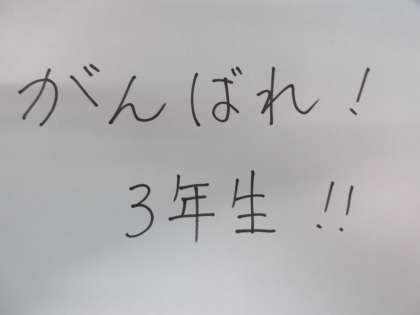 がんばれ！
3年生!!